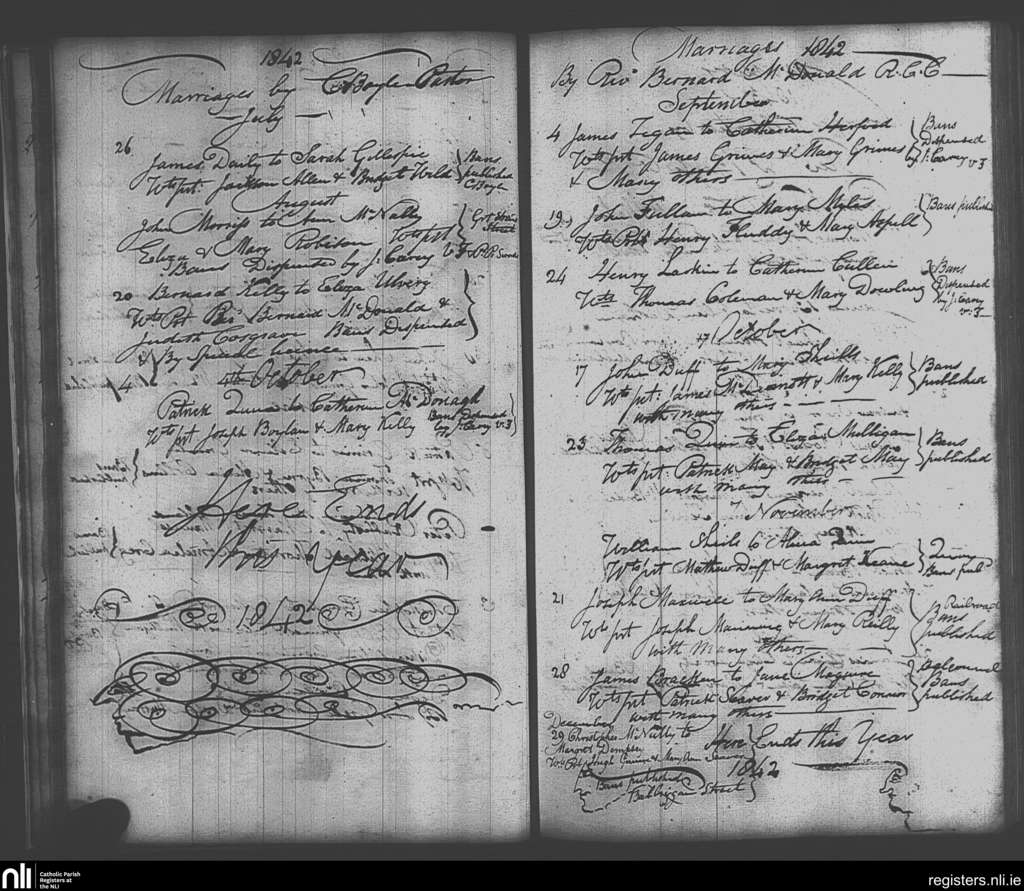 1842
Marriages by C Boyle Pastor
July
26
James Daily to Sarah Gillespie
Wts prt. Jackson Allen & Bridget Weld
Bans
published
C Boyle
August
John Morriss to Ann McNally
Eliza & Mary Robison Wts prt
Bans Dispensed by J. Carey V F
Street
20 Bernard Kelly to Eliza
Wts Prt Revd Bernard McDonald &
Judith Cosgrave Bans Dispensed
By Special licence
4
4th October
Patrick Quinn to Catherine McDonagh
Wts prt Joseph Boylan & Mary Kelly
Bans Dispensed
by J. Carey v. F
Here Ends
this year
1842
Marriages 1842
By Revd Bernard McDonald R.C.C
September
4 James Fegan to Catherine Herford
Wts prt. James Grimes & Mary Grimes
& Many others
Bans
Dispensed
by J. Carey v. F
19 John Fullam to Mary Myles
Wts Prt Henry Fluddy & Mary Aspell
Bans published
24 Henry Larkin to Catherine Cullen
Wts Thomas Coleman & Mary Dowling
Bans
Dispensed
by J. Carey
v. F
17 October
17 John Duff to Mary Shiells
Wts prt. James McDermott & Mary Kelly
with many others
Bans
published
23 Thomas to Eliza Mulligan
Wts prt Patrick May & Bridget May
with many others
Bans
published
November
William Sheils to Quin
Wts prt Mathew Duff & Margret Keane
Bans publd
21 Joseph Maxwell to Mary Ann Duff
Wts prt Joseph Manning & Mary Reilly
with Many others
Railroad
Bans
published
28 James Bracken to Jane Maguire
Wts prt Patrick Seaver & Bridget Connor
with many others
Bans
published
December
29 Christopher McNally to
Margret Dempsey
Wts Prt Joseph & Mary Ann
Bans published
Balbriggan Street
Here Ends this Year
1842
nli
Catholic Parish
Registers at
the NLI
registers.nli.ie